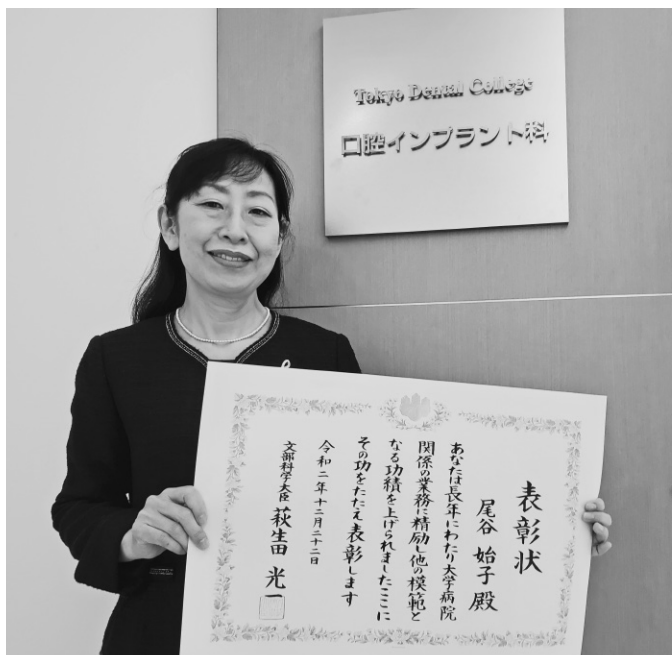 Tokyo Dental College
口腔インプラント科
表彰状
尾谷 始子 殿
あなたは長年にわたり大学病院
関係の業務に精励し他の模範と
なる功績を上げられましたここに
その功をたたえ表彰します
令和二年十二月二十二日
文部科学大臣 萩生田 光一